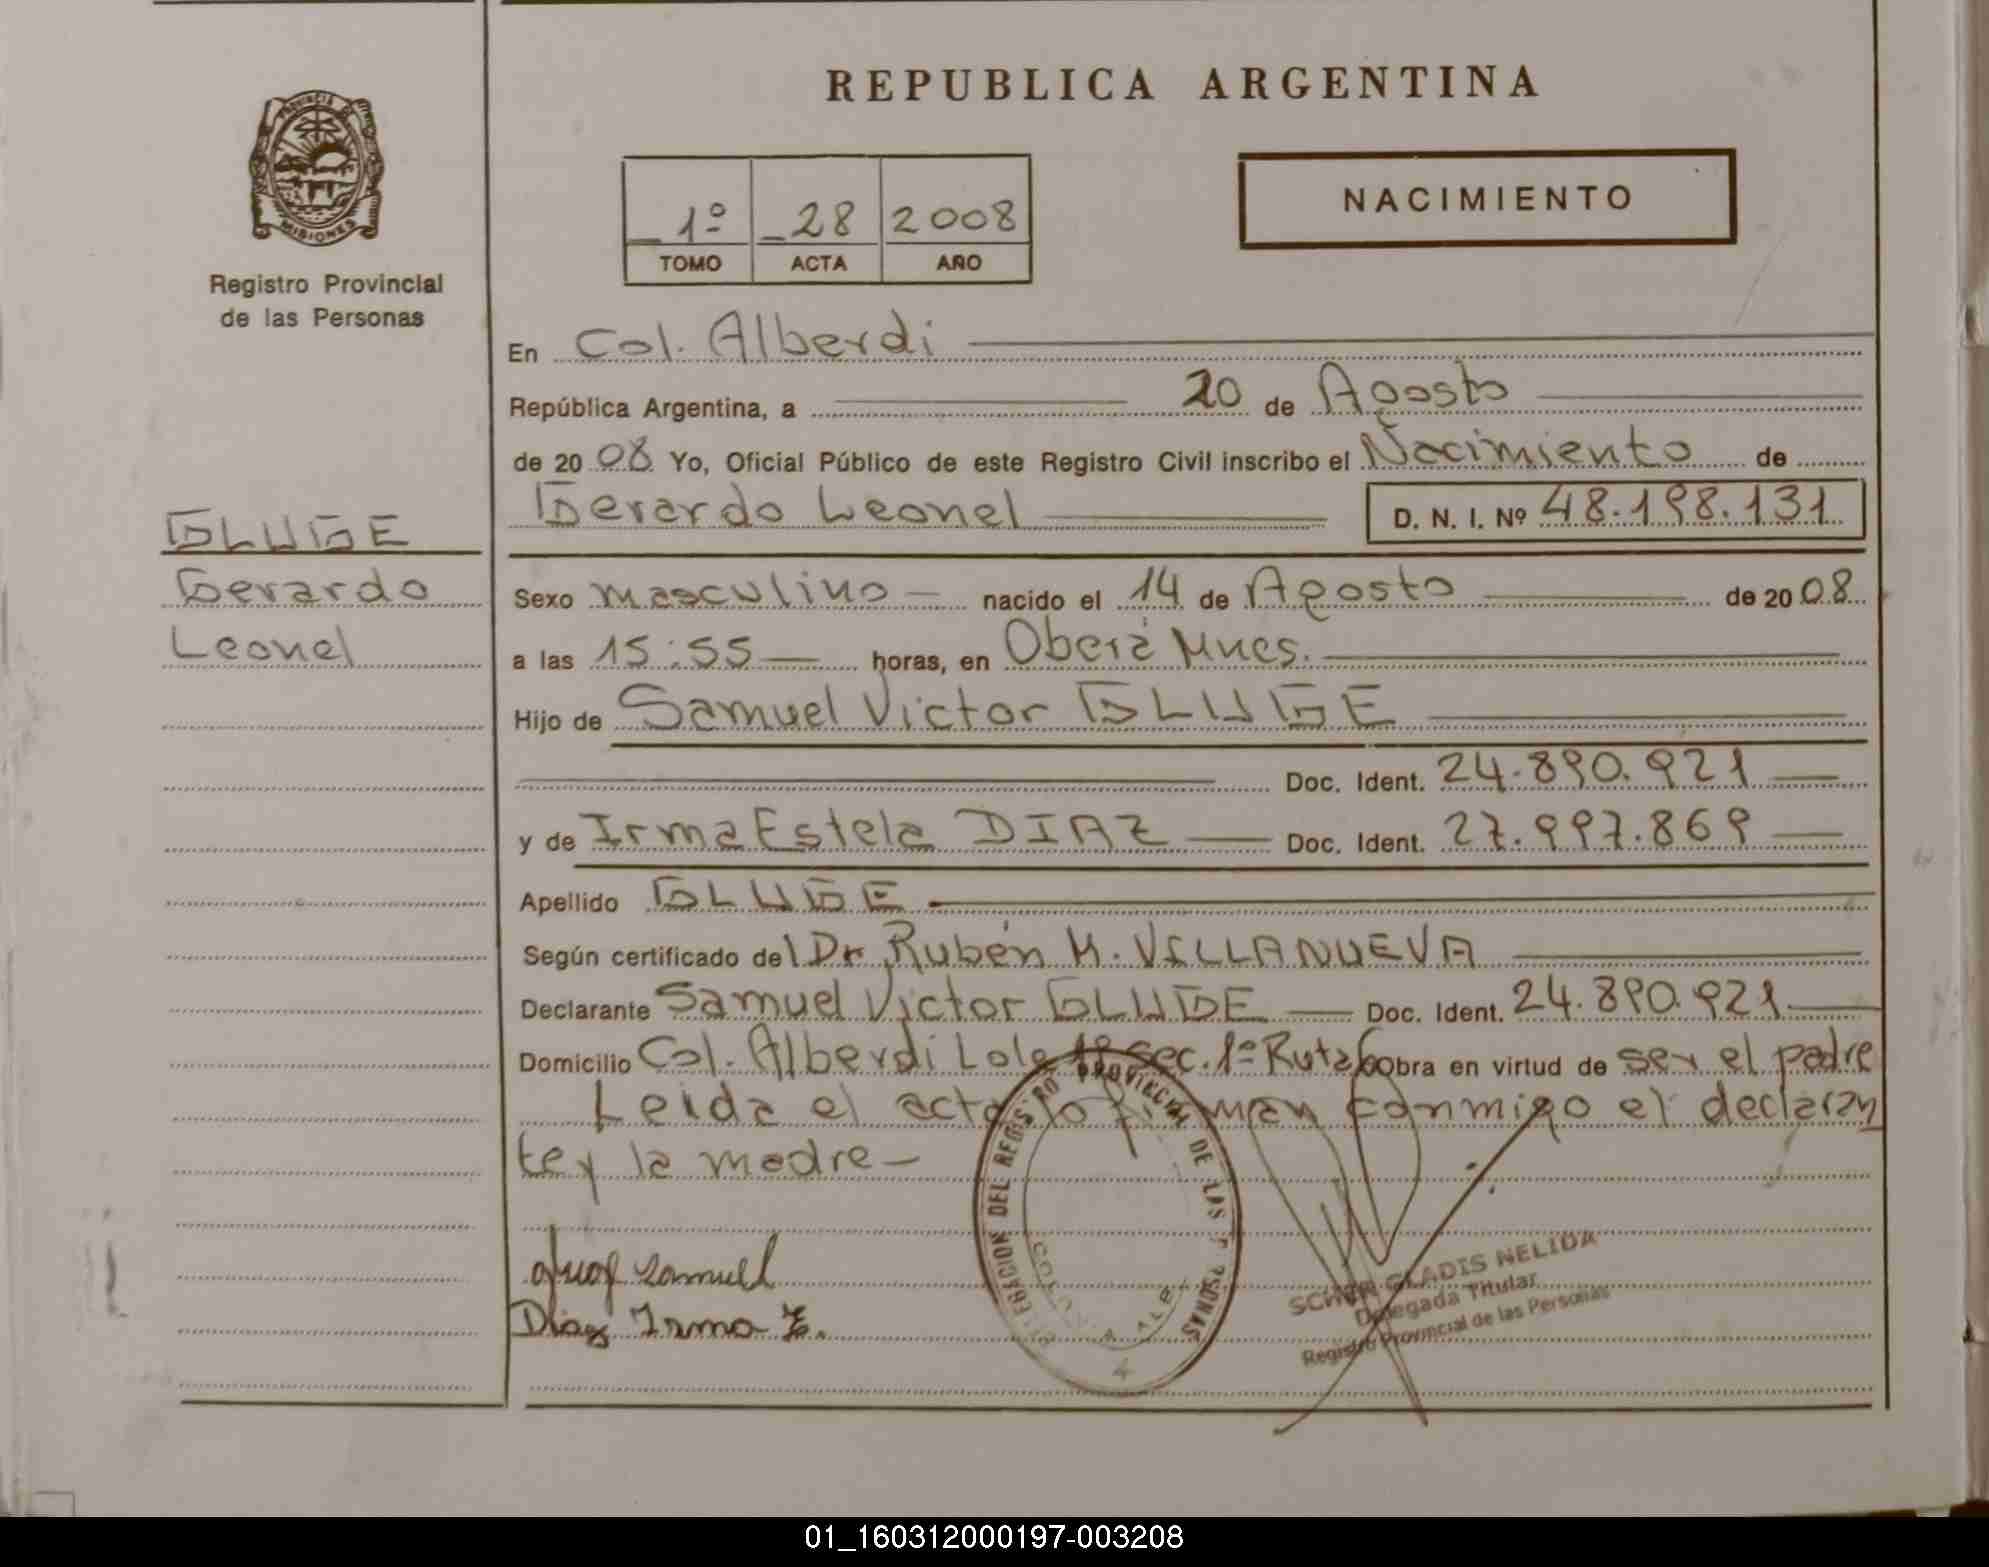 REPUBLICA ARGENTINA
PROVINCIA DE
MISIONES
Registro Provincial
de las Personas
NACIMIENTO
1º 28 2008
TOMO ACTA AÑO
En Col. Alberdi
República Argentina, a 20 de Agosto
de 2008 Yo, Oficial Público de este Registro Civil inscribo el Nacimiento de
Gerardo Leonel D. N. I. Nº 48.198.131
GLUGE
Gerardo
Leonel
Sexo masculino nacido el 14 de Agosto de 2008
a las 15:55 horas, en Oberá Mnes.
Hijo de Samuel Victor GLUGE
Doc. Ident. 24.890.921
y de Irma Estela DIAZ Doc. Ident. 27.997.869
Apellido GLUGE
Según certificado del Dr Rubén H. VILLANUEVA
Declarante Samuel Victor GLUGE Doc. Ident. 24.890.921
Domicilio Col. Alberdi Lote 18 sec. 1º Ruta 6 obra en virtud de ser el padre
Leida el acta lo firman conmigo el declaran
te y la madre
Samuel
Diaz Irma E.
DEL REGISTRO PROVINCIAL DE LAS PERSONAS
GLADIS NELIDA
Delegada Titular
Registro Provincial de las Personas
01_160312000197-003208